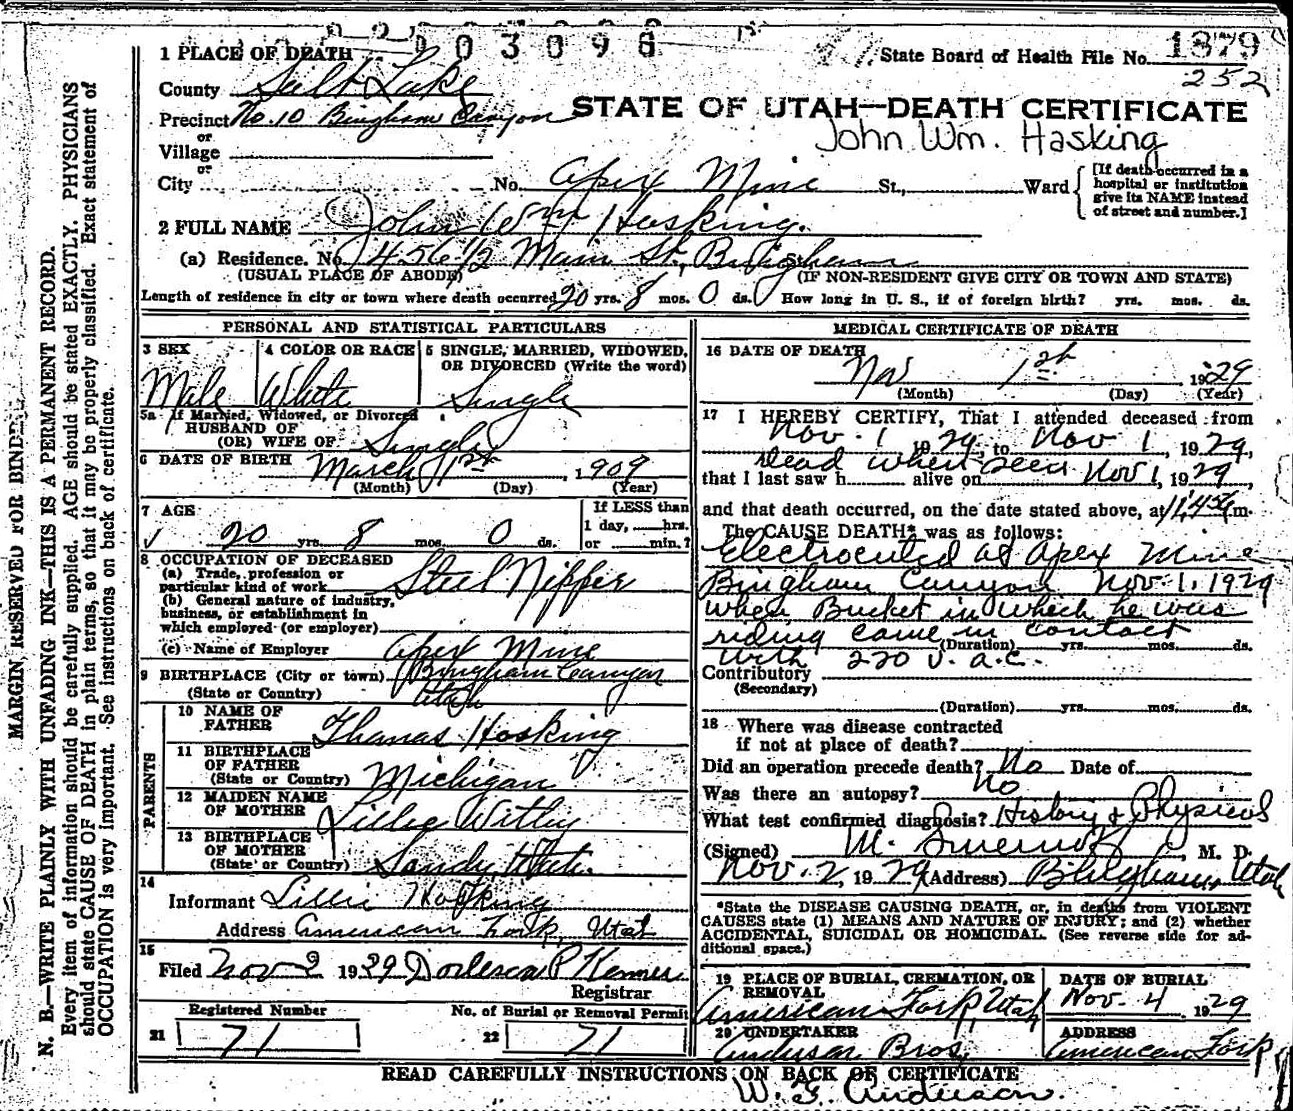 003098
1 PLACE OF DEATH
State Board of Health File No. 1879
252
County Salt Lake
STATE OF UTAH—DEATH CERTIFICATE
Precinct No. 10 Bingham Canyon
John Wm. Hasking
or
Village
or
City No. Apex Mine St., Ward
[If death occurred in a
hospital or institution
give its NAME instead
of street and number.]
2 FULL NAME John Wm Hosking.
(a) Residence. No. 456 1/2 Main St, Bingham St.
(USUAL PLACE OF ABODE) (IF NON-RESIDENT GIVE CITY OR TOWN AND STATE)
Length of residence in city or town where death occurred 20 yrs. 8 mos. 0 ds. How long in U. S., if of foreign birth? yrs. mos. ds.
PERSONAL AND STATISTICAL PARTICULARS
3 SEX
Male
4 COLOR OR RACE
White
5 SINGLE, MARRIED, WIDOWED,
OR DIVORCED (Write the word)
Single
5a If Married, Widowed, or Divorced
HUSBAND OF
(OR) WIFE OF Single
6 DATE OF BIRTH March 1st, 1909
(Month) (Day) (Year)
7 AGE
20 yrs. 8 mos. 0 ds.
If LESS than
1 day, hrs.
or min.?
8 OCCUPATION OF DECEASED
(a) Trade, profession or
particular kind of work Steel Nipper
(b) General nature of industry,
business, or establishment in
which employed (or employer)
(c) Name of Employer Apex Mine
9 BIRTHPLACE (City or town) Bingham Canyon
(State or Country) Utah
PARENTS
10 NAME OF
FATHER Thomas Hosking
11 BIRTHPLACE
OF FATHER
(State or Country) Michigan
12 MAIDEN NAME
OF MOTHER Lillie
13 BIRTHPLACE
OF MOTHER
(State or Country) Sandy, Utah.
14
Informant Lillie Hosking
Address American Fork, Utah
15
Filed Nov 2 1929
Registrar
Registered Number
21 71
No. of Burial or Removal Permit
22 71
MEDICAL CERTIFICATE OF DEATH
16 DATE OF DEATH
Nov 1st 1929
(Month) (Day) (Year)
17 I HEREBY CERTIFY, That I attended deceased from
Nov. 1 1929, to Nov 1, 1929,
dead when seen
that I last saw h alive on Nov 1, 1929
and that death occurred, on the date stated above, at m.
The CAUSE DEATH* was as follows:
Electrocuted at Apex Mine
Bingham Canyon Nov. 1, 1929
when Bucket in which he was
riding came in contact
(Duration) yrs. mos. ds.
with 220 v. a.c.
Contributory
(Secondary)
(Duration) yrs. mos. ds.
18 Where was disease contracted
if not at place of death?
Did an operation precede death? No Date of
Was there an autopsy? No
What test confirmed diagnosis? History & Physical
(Signed) M. , M. D.
Nov. 2, 1929 (Address) Bingham, Utah
*State the DISEASE CAUSING DEATH, or, in deaths from VIOLENT
CAUSES state (1) MEANS AND NATURE OF INJURY; and (2) whether
ACCIDENTAL, SUICIDAL OR HOMICIDAL. (See reverse side for ad-
ditional space.)
19 PLACE OF BURIAL, CREMATION, OR
REMOVAL
American Fork, Utah
DATE OF BURIAL
Nov. 4 1929
20 UNDERTAKER
Anderson Bros.
ADDRESS
American Fork
READ CAREFULLY INSTRUCTIONS ON BACK OF CERTIFICATE
Anderson.
MARGIN RESERVED FOR BINDING
N. B.—WRITE PLAINLY WITH UNFADING INK—THIS IS A PERMANENT RECORD.
Every item of information should be carefully supplied. AGE should be stated EXACTLY. PHYSICIANS
should state CAUSE OF DEATH in plain terms, so that it may be properly classified. Exact statement of
OCCUPATION is very important. See instructions on back of certificate.